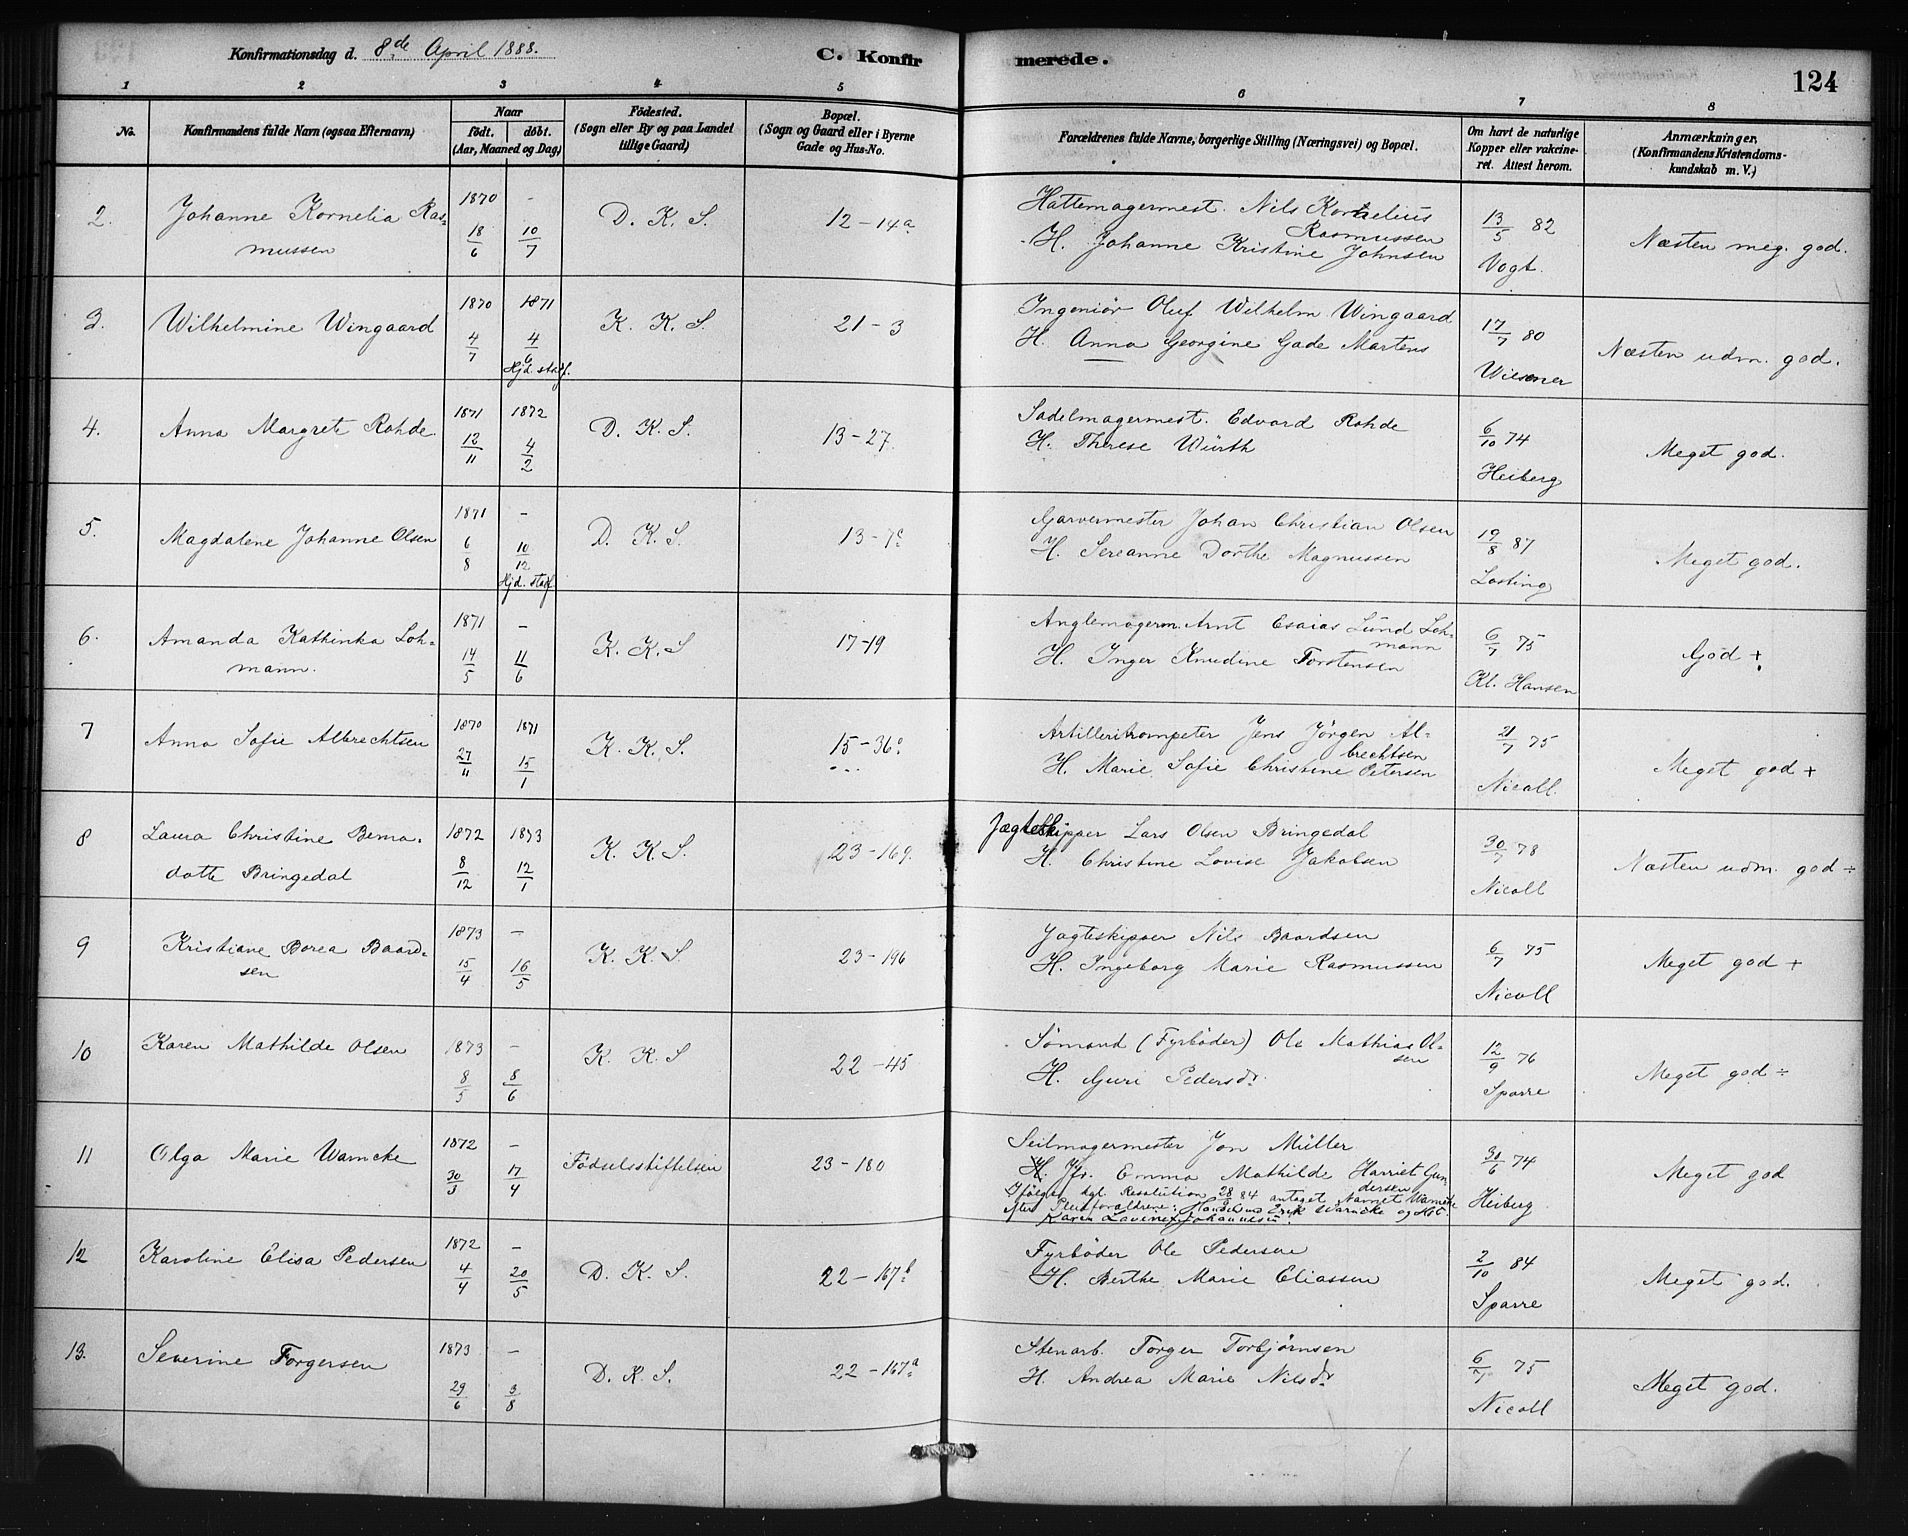 Konfirmationsdag d. 8de April 1888.
C. Konfirmerede.
124
1 2 3 4 5 6 7 8
No.
Konfirmandens fulde Navn (ogsaa Efternavn)
Naar
født. døbt.
(Aar, Maaned og Dag)
Fødested.
(Sogn eller By og paa Landet
tillige Gaard)
Bopæl.
(Sogn og Gaard eller i Byerne
Gade og Hus-No.
Forældrenes fulde Navne, borgerlige Stilling (Næringsvei) og Bopæl.
Om havt de naturlige
Kopper eller vakcine-
ret. Attest herom.
Anmærkninger,
(Konfirmandens Kristendoms-
kundskab m. V.)
2. Johanne Kornelia Ras-
mussen
1870 18/6 – 10/7
D. K. S.
12 – 14a
Hattemagermest. Nils Kornelius
Rasmussen
H. Johanne Kristine Johnsen
13/5 82
Vogt.
Næsten meg. god.
3. Wilhelmine Wingaard
1870 4/7 1871 4/6
Hjd. stadf.
K. K. S.
21 – 3
Ingeniør Oluf Wilhelm Wingaard
H. Anna Georgine Gade Martens
17/7 80
Wiesener
Næsten udm. god.
4. Anna Margrete Rohde.
1871 12/11 1872 4/2
D. K. S.
13 – 27
Sadelmagermest. Edvard Rohde
H. Therese Würth
6/10 74
Heiberg
Meget god.
5. Magdalene Johanne Olsen
1871 6/8 – 10/12
Hjd. stadf.
D. K. S.
13 – 7c
Garvermester Johan Christian Olsen
H. Sereanne Dorthe Magnussen
19/8 87
Lasting
Meget god.
6. Amanda Kathinka Loh-
mann.
1871 14/5 – 11/6
K. K. S
17 – 19
Anglemagerm. Arnt Esaias Lund Loh-
mann
H. Inger Knudine Torstensen
6/7 75
Kl. Hansen
God +
7 Anna Sofie Albrechtsen
1870 27/11 1871 15/1
K. K. S.
15 – 36c
Artilleritrompeter Jens Jörgen Al-
brechtsen
H. Marie Sofie Christine Petersen
21/7 75
Nicoll.
Meget god +
8 Laura Christine Berna-
dotte Bringedal
1872 8/12 1873 12/1
K. K. S.
23 – 169.
Jægteskipper Lars Olsen Bringedal
H. Christine Lovise Jakobsen
30/7 78
Nicoll
Næsten udm. god ÷
9 Kristiane Borea Baard-
sen
1873 15/4 – 16/5
K. K. S.
23 – 196
Jagteskipper Nils Baardsen
H. Ingeborg Marie Rasmussen
6/7 75
Nicoll
Meget god +
10 Karen Mathilde Olsen
1873 8/5 – 8/6
K. K. S
22 – 45
Sømand (Fyrbøder) Ole Mathias Ol-
sen
H. Guri Pedersdr.
12/9 76
Sparre
Meget god ÷
11 Olga Marie Warncke
1872 30/3 – 17/4
Födselsstiftelsen
23 – 180
Seilmagermester Jon Müller
H. Jfr. Emma Mathilde Harriet Gun-
dersen
Ifølge kgl. Resolution 28/ 84 antaget Navnet Warncke
efter Pleieforældrene: Erik Warncke og Hst.
Karen Lavine Johannesen.
30/6 74
Heiberg
Meget god
12 Karoline Elisa Pedersen
1872 4/4 – 20/5
D. K. S.
22 – 167b
Fyrbøder Ole Pedersen
H. Berthe Marie Eliassen
2/10 84
Sparre
Meget god.
13. Severine Torgersen
1873 29/6 – 3/8
D. K. S.
22 – 167a
Stenarb. Torger Torbjørnsen
H. Andrea Marie Nilsdr
6/7 75
Nicoll
Meget god.